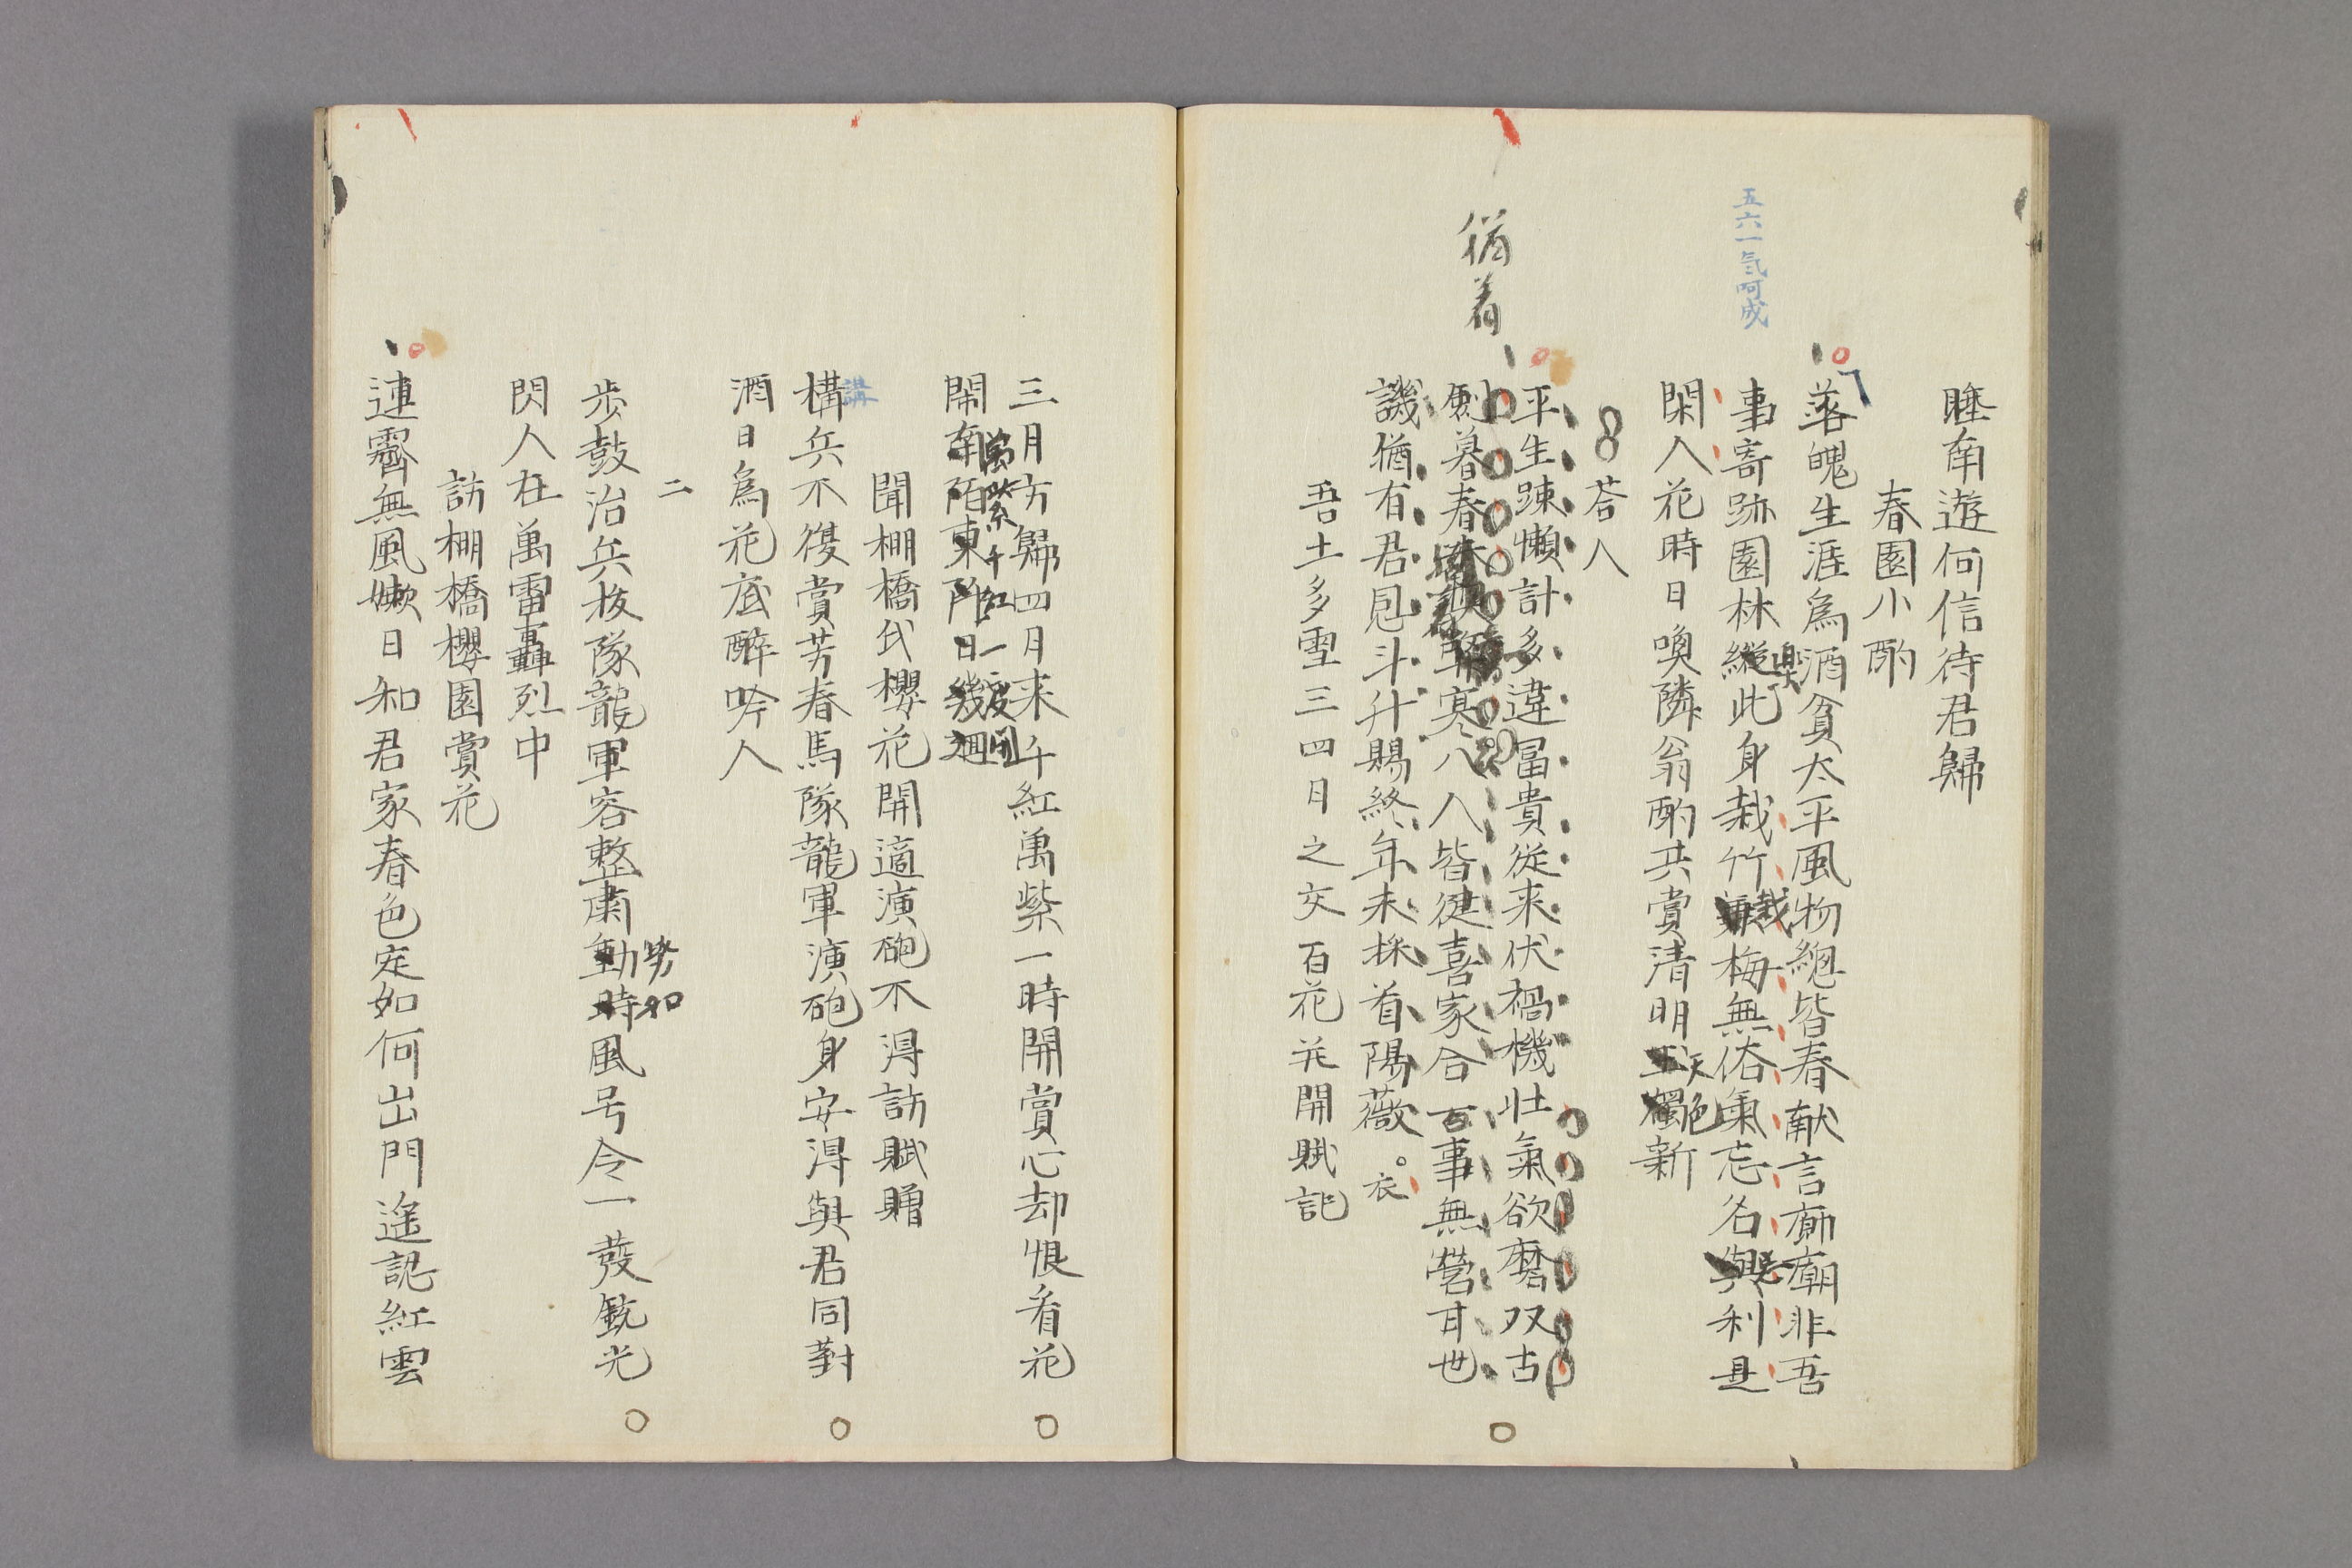 睡南遊何信待君歸
春園小酌
落魄生涯為酒貧太平風物総皆春献言廊廟非吾
事寄跡園林縱此身栽竹栽梅無俗氣忘名忘利是
樂
閑人花時日喚隣翁酌共賞清明天色新
五六一気呵成
答人
平生踈懶計多違冨貴従来伏禍機壮氣欲磨双古
劍暮春寒八人皆健喜家合百事無營甘世
猶着
譏猶有君恩斗升賜終年未採首陽薇
衣
吾土多雪三四日之交百花茫開賦記
三月方歸四月来千紅萬紫一時開賞心却恨看花
萬紫千紅一度開
鬧南陌東阡日幾廻
聞棚橋氏櫻花開適演砲不得訪賦贈
構兵不復賞芳春馬隊龍軍演砲身安得與君同對
講
酒日為花底醉吟人
二
歩鼓治兵抜隊龍軍容整肅動時風号令一發銃光
閃人在萬雷轟烈中
訪棚橋櫻園賞花
連霽無風嫩日和君家春色定如何出門遥認紅雲